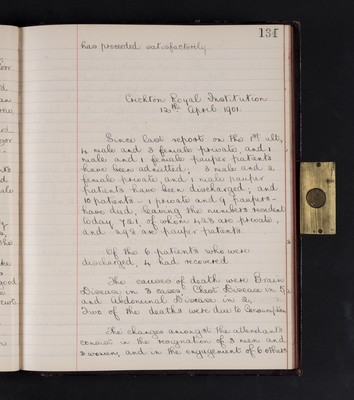 131
has proceeded satisfactorily.
Crichton Royal Institution
12th April 1901.
Since last report on the 1st ulto,
4 male and 3 female private, and 1
male and 1 female pauper patients
have been admitted; 3 male and 2
female private and 1 male pauper
patients have been discharged; and
10 patients - 1 private and 9 paupers -
have died, leaving the numbers resident
today 721 of whom 423 are private,
and 298 are pauper patients.
Of the 6 patients who were
discharged, 4 had recovered
The causes of death were Brain
Disease in 3 cases, Chest Disease in 5,
and Abdominal Disease in 2,
Two of the deaths were due to Consumption
The changes amongst the attendants
consist in the resignation of 3 men and
3 women, and in the engagement of 6 others